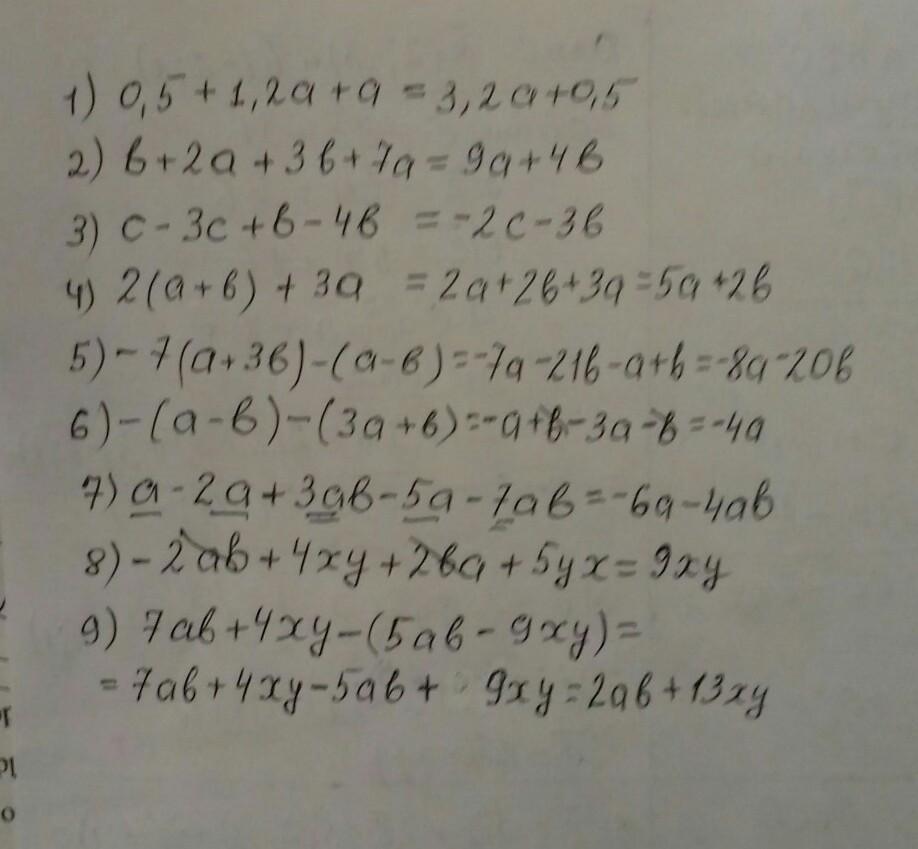 1) 0,5 + 1,2a + a = 3,2a + 0,5
2) в + 2a + 3в + 7a = 9a + 4в
3) c - 3c + в - 4в = -2c - 3в
4) 2(a + в) + 3a = 2a + 2в + 3a = 5a + 2в
5) -7(a + 3в) - (a - в) = -7a - 21в - a + в = -8a - 20в
6) -(a - в) - (3a + в) = -a + в - 3a - в = -4a
7) a - 2a + 3aв - 5a - 7aв = -6a - 4aв
8) -2aв + 4xy + 2вa + 5yx = 9xy
9) 7aв + 4xy - (5aв - 9xy) =
= 7aв + 4xy - 5aв + 9xy = 2aв + 13xy